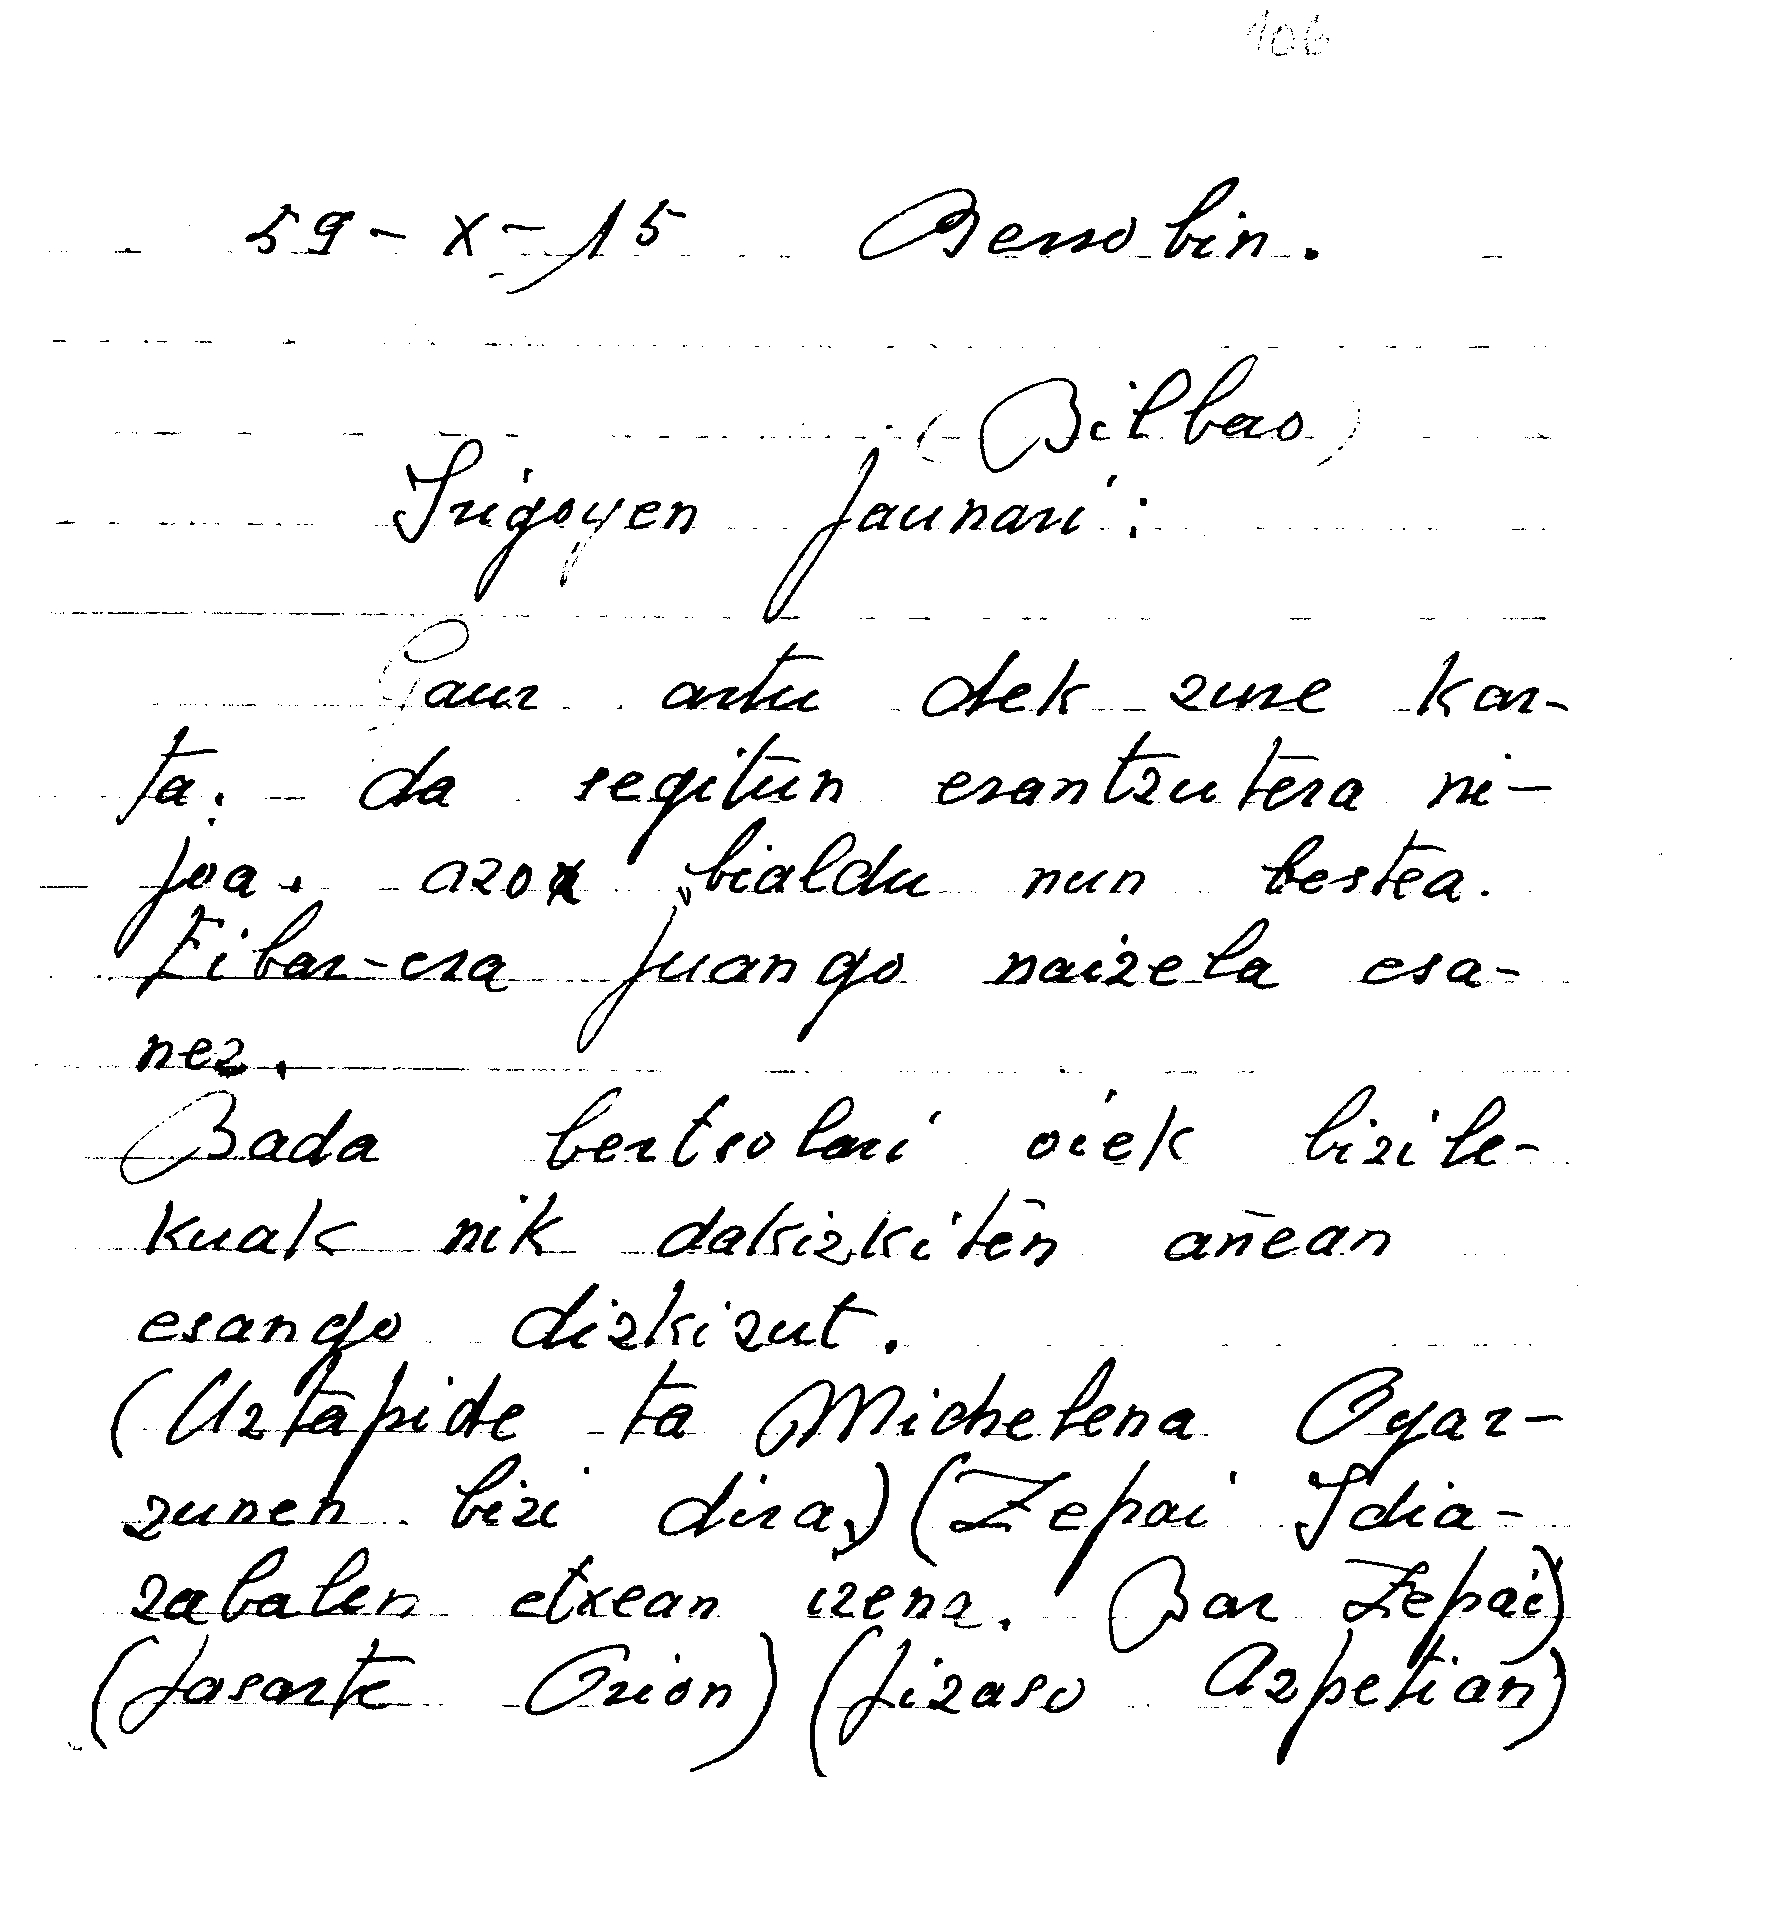 106
59-X-15 Berrobin.
(Bilbao)
Irigoyen Jaunari:
Gaur artu dek zure kar-
ta. da segitun erantzutera ni-
joa. azox bialdu nun bestea.
Eibar-era juango naizela esa-
nez.
Bada bertsolari oiek bizile-
kuak nik dakizkiten añean
esango dizkizut.
(Uztapide ta Michelena Oyar-
zunen bizi dira,) (Zepai Idia-
zabalen etxean izena. Bar Zepai)
(Jasarte Orion) (Jizaso Azpetian)